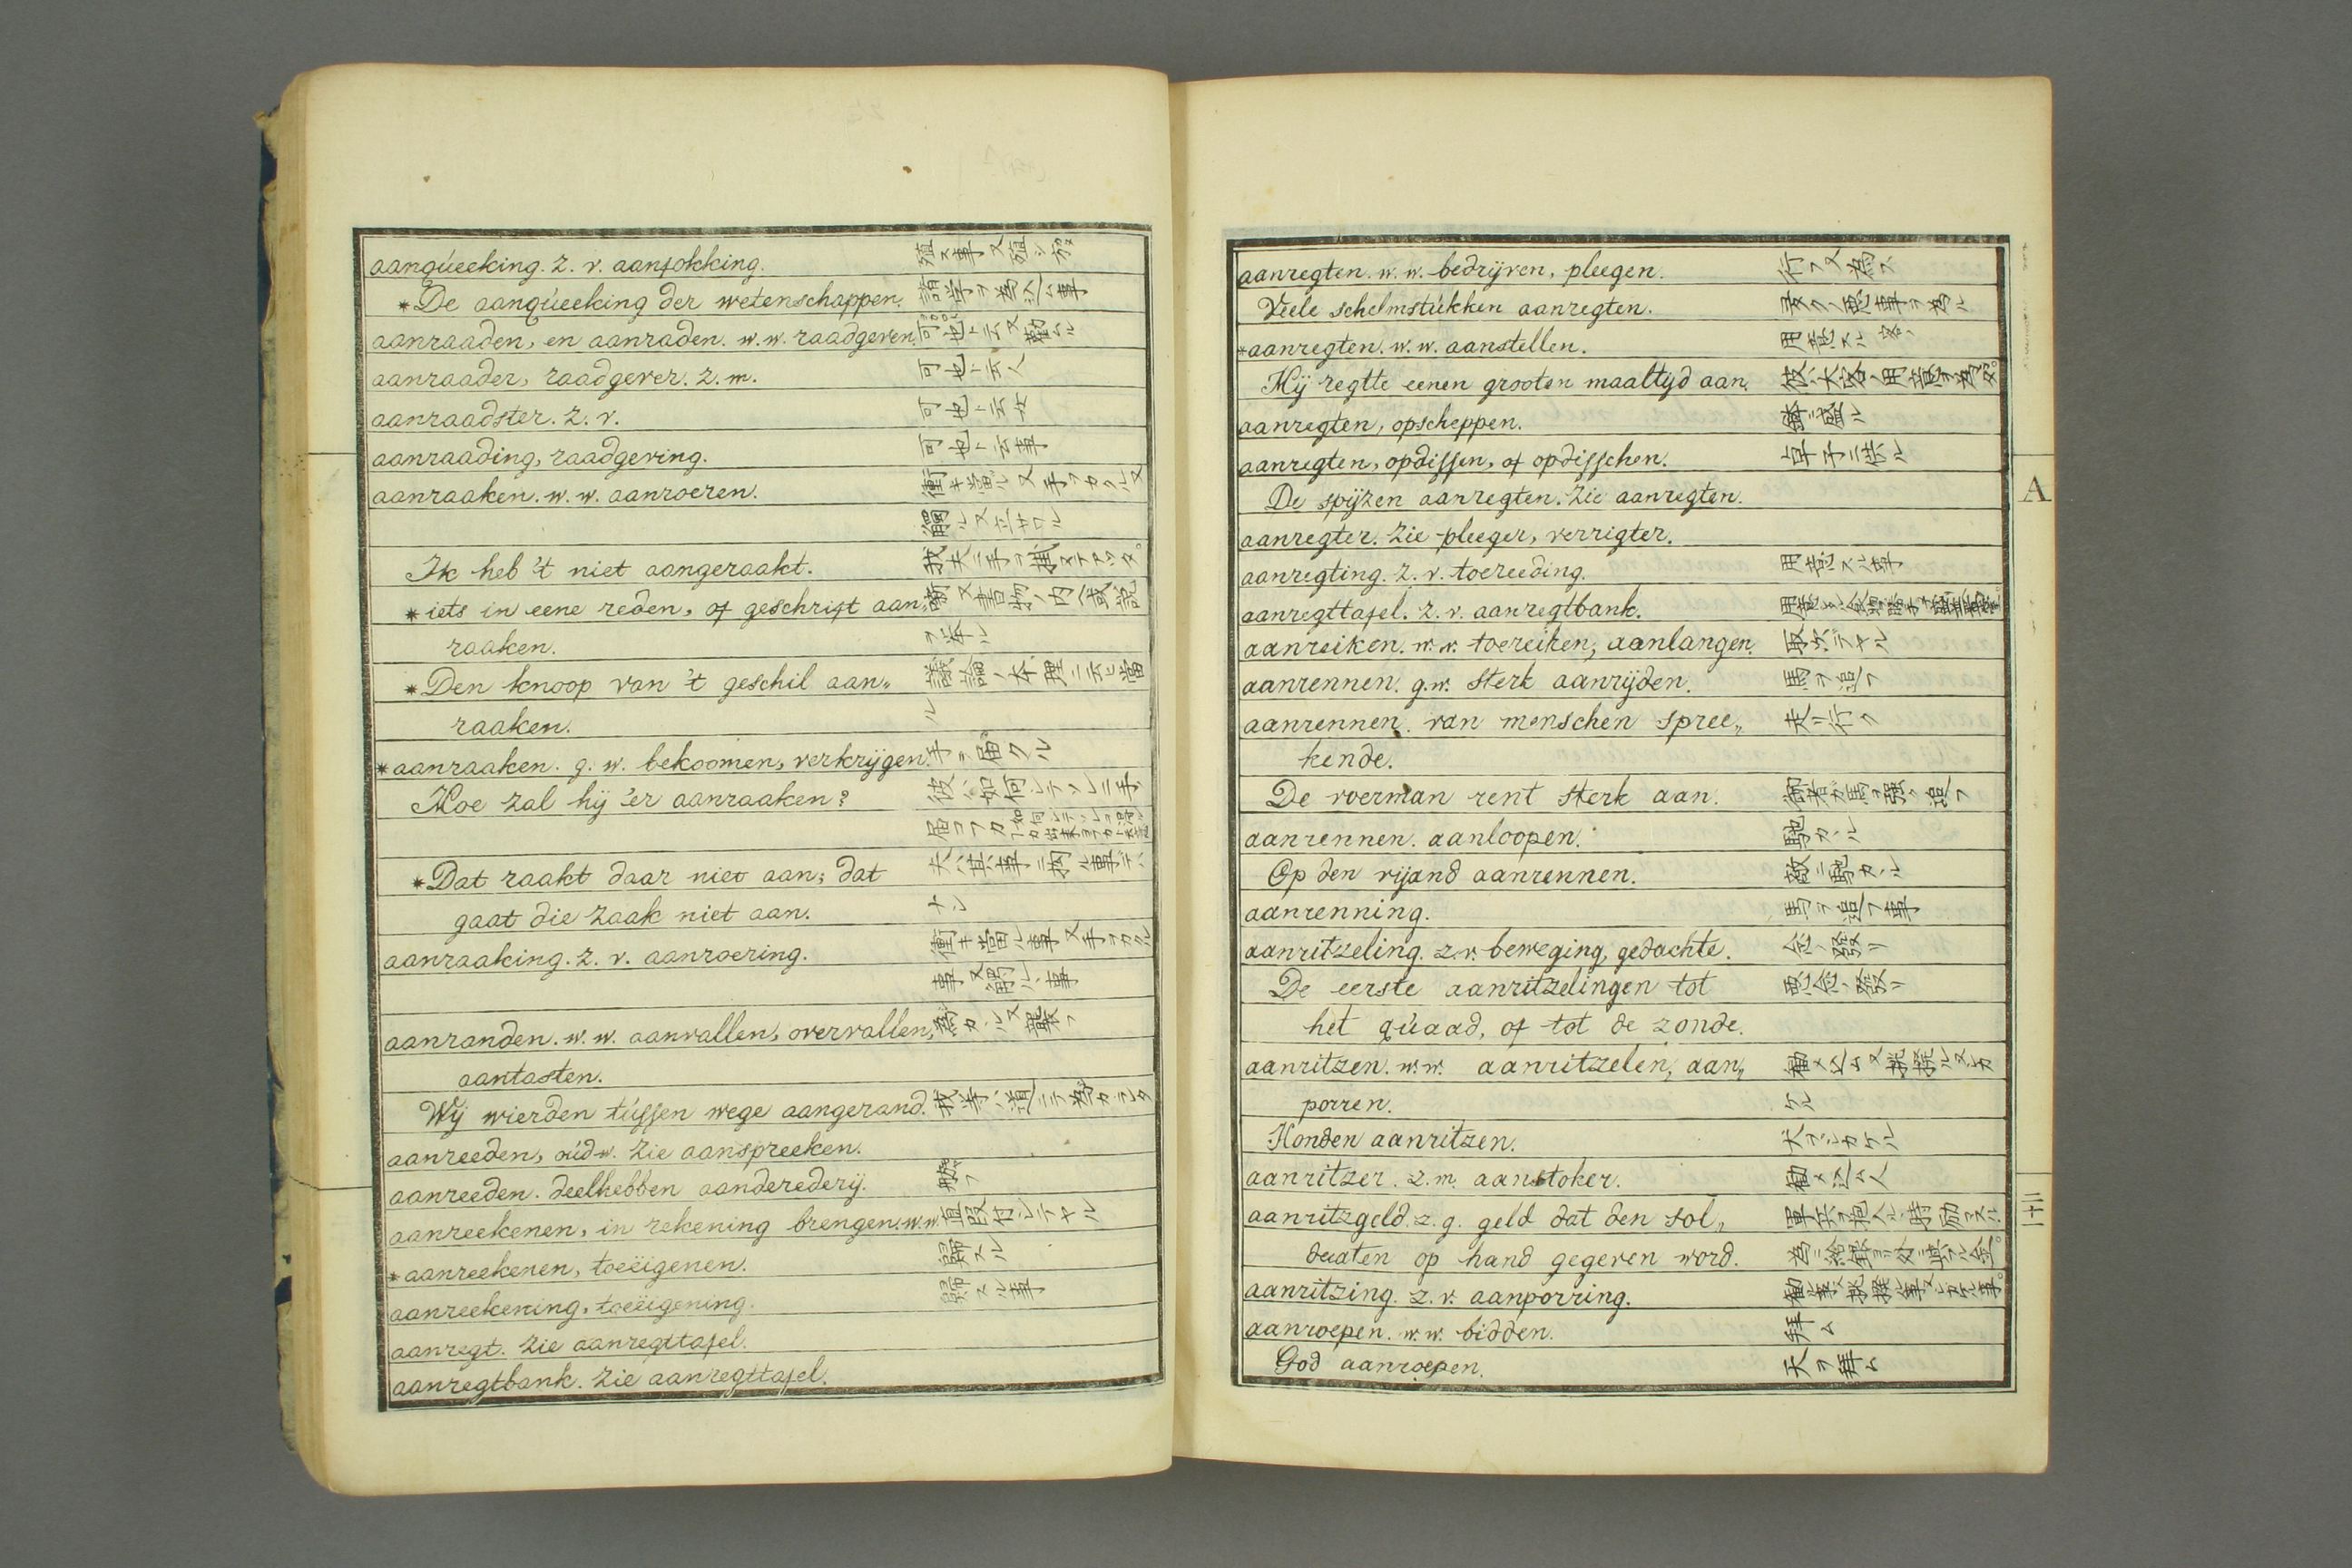 aanqúeeking. z. v. aanfokking. 殖ス事又殖シ方
*De aanqúeeking der wetenschappen. 諸学ヲ為込ム事
aanraaden, en aanraden. w.w. raadgeven. 可也ト云又勸ムル
aanraader, raadgever. z. m. 可也ト云人
aanraadster. z. v. 可也ト云女
aanraading, raadgeving. 可也ト云事
aanraaken. w. w. aanroeren. 衝キ當ル又手ヲカクル又
觸ル又立サワル
Ik heb 't niet aangeraakt. 我夫ニ手ヲ掛ヌテアツタ。
*iets in eene reden, of geschrift aan„ 書物ノ内ニ或説
raaken. ヲ举ル
*Den knoop van 't geschil aan„ 議論ノ本理ニ云ヒ當
raaken. ル
*aanraaken. g. w. bekoomen, verkrijgen. 手ヲ届クル
Hoe zal hij 'er aanraaken? 彼ハ如何シテソレニ手
届コフカ
*Dat raakt daar niet aan; dat 夫ハ其事ニ拘ル事デハ
gaat die zaak niet aan. ナシ
aanraaking. z. v. aanroering. 衝キ當ル事又手ヲカクル
事又觸ル事
aanranden. w. w. aanvallen, overvallen, 為カヽル又襲フ
aantasten.
Wij wierden tússen wege aangerand. 我等ハ道ニテ為カラレタ
aanreeden, oúd w. zie aanspreeken.
aanreeden. deelhebben aanderederij.
aanreekenen, in rekening brengen. w.w. 直段付シテヤル
*aanreekenen, toeëigenen. 歸スル
aanreekening, toeëigening. 歸スル事
aanregt. zie aanregttafel.
aanregtbank. zie aanregttafel.
aanregten. w. w. bedrijven, pleegen. 行フ又為ス
Veele schelmstúkken aanregten. 多クノ悪事ヲ為ル
*aanregten. w. w. aanstellen. 用意スル
Hij regtte eenen grooten maaltijd aan. 彼ハ大客ノ用意ヲ為タ。
aanregten, opscheppen. 盛ル
aanregten, opdissen, of opdisschen. 卓子ニ供ル
De spijzen aanregten. zie aanregten.
aanregter. zie pleeger, verrigter.
aanregting. z. v. toereeding. 用意スル事
aanregttafel. z. v. aanregtbank.
aanreiken. w. w. toereiken, aanlangen. 取次デヤル
aanrennen. g.w. sterk aanrijden. 馬ヲ追フ
aanrennen. van menschen spree„ 走リ行ク
kende.
De voerman rent sterk aan. 御者ガ馬ヲ强ク追フ
aanrennen. aanloopen. 馳カヽル
Op den vijand aanrennen. 敵ニ馳カヽル
aanrenning. 馬ヲ追フ事
aanritzeling. z.v. beweging, gedachte. 念ノ發リ
De eerste aanritzelingen tot 悪念ノ發リ
het qúaad, of tot de zonde.
aanritzen. w. w. aanritzelen, aan„ 勧メ込ム又挑撥ル又シカ
porren. ケル
Honden aanritzen. 犬ヲシカケル
aanritzer. z. m. aanstoker. 勧メ込ム人
aanritzgeld. z. g. geld dat den sol„
daaten op hand gegeven word.
aanritzing. z. v. aanporring.
aanroepen. w. w. bidden. 拜ム
God aanroepen. 天ヲ拜ム
A